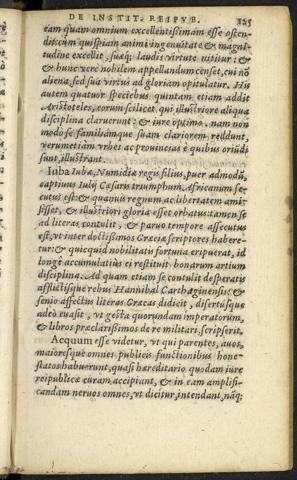 DE INSTIT. REIPVB. 125
eam quam omnium excellentißimam esse osten-
dit: cùm quispiam animi ingenuitate & magni-
tudine excellit, suæq; laudis virtute nititur: &
& hunc verè nobilem appellandum censet, cui nō
aliena, sed sua virtus ad gloriam opitulatur. His
autem quatuor speciebus quintam etiam addit
Aristoteles, eorum scilicet, qui illustriore aliqua
disciplina claruerunt: & iure optimo. nam non
modò se familiámque suam clariorem reddunt,
verumetiam vrbes ac prouincias è quibus oriūdi
sunt, illustrant.
Iuba Iubæ, Numidiæ regis filius, puer admodū,
captiuus Iulij Cæsaris triumphum Africanum se-
cutus est: & quanuis regnum ac libertatem ami-
sisset, & illustriori gloria esset orbatus: tamen se
ad literas contulit, & paruo tempore assecutus
est, vt inter doctißimos Græciæ scriptores habere-
tur: & quicquid nobilitatis fortuna eripuerat, id
longè accumulatius ei restituit bonarum artium
disciplina. Ad quam etiam se contulit desperatis
afflictísque rebus Hannibal Carthaginensis: &
senio affectus literas Græcas didicit, disertúsque
adeò euasit, vt gesta quorundam imperatorum,
& libros præclarißimos de re militari, scripserit.
Acquum esse videtur, vt qui parentes, auos,
maioresque omnes publicis functionibus hone-
statos habuerunt, quasi hæreditario quodam iure
reipublicæ curam accipiant, & in eam amplifi-
candam neruos omnes, vt dicitur, intendant, nāq;